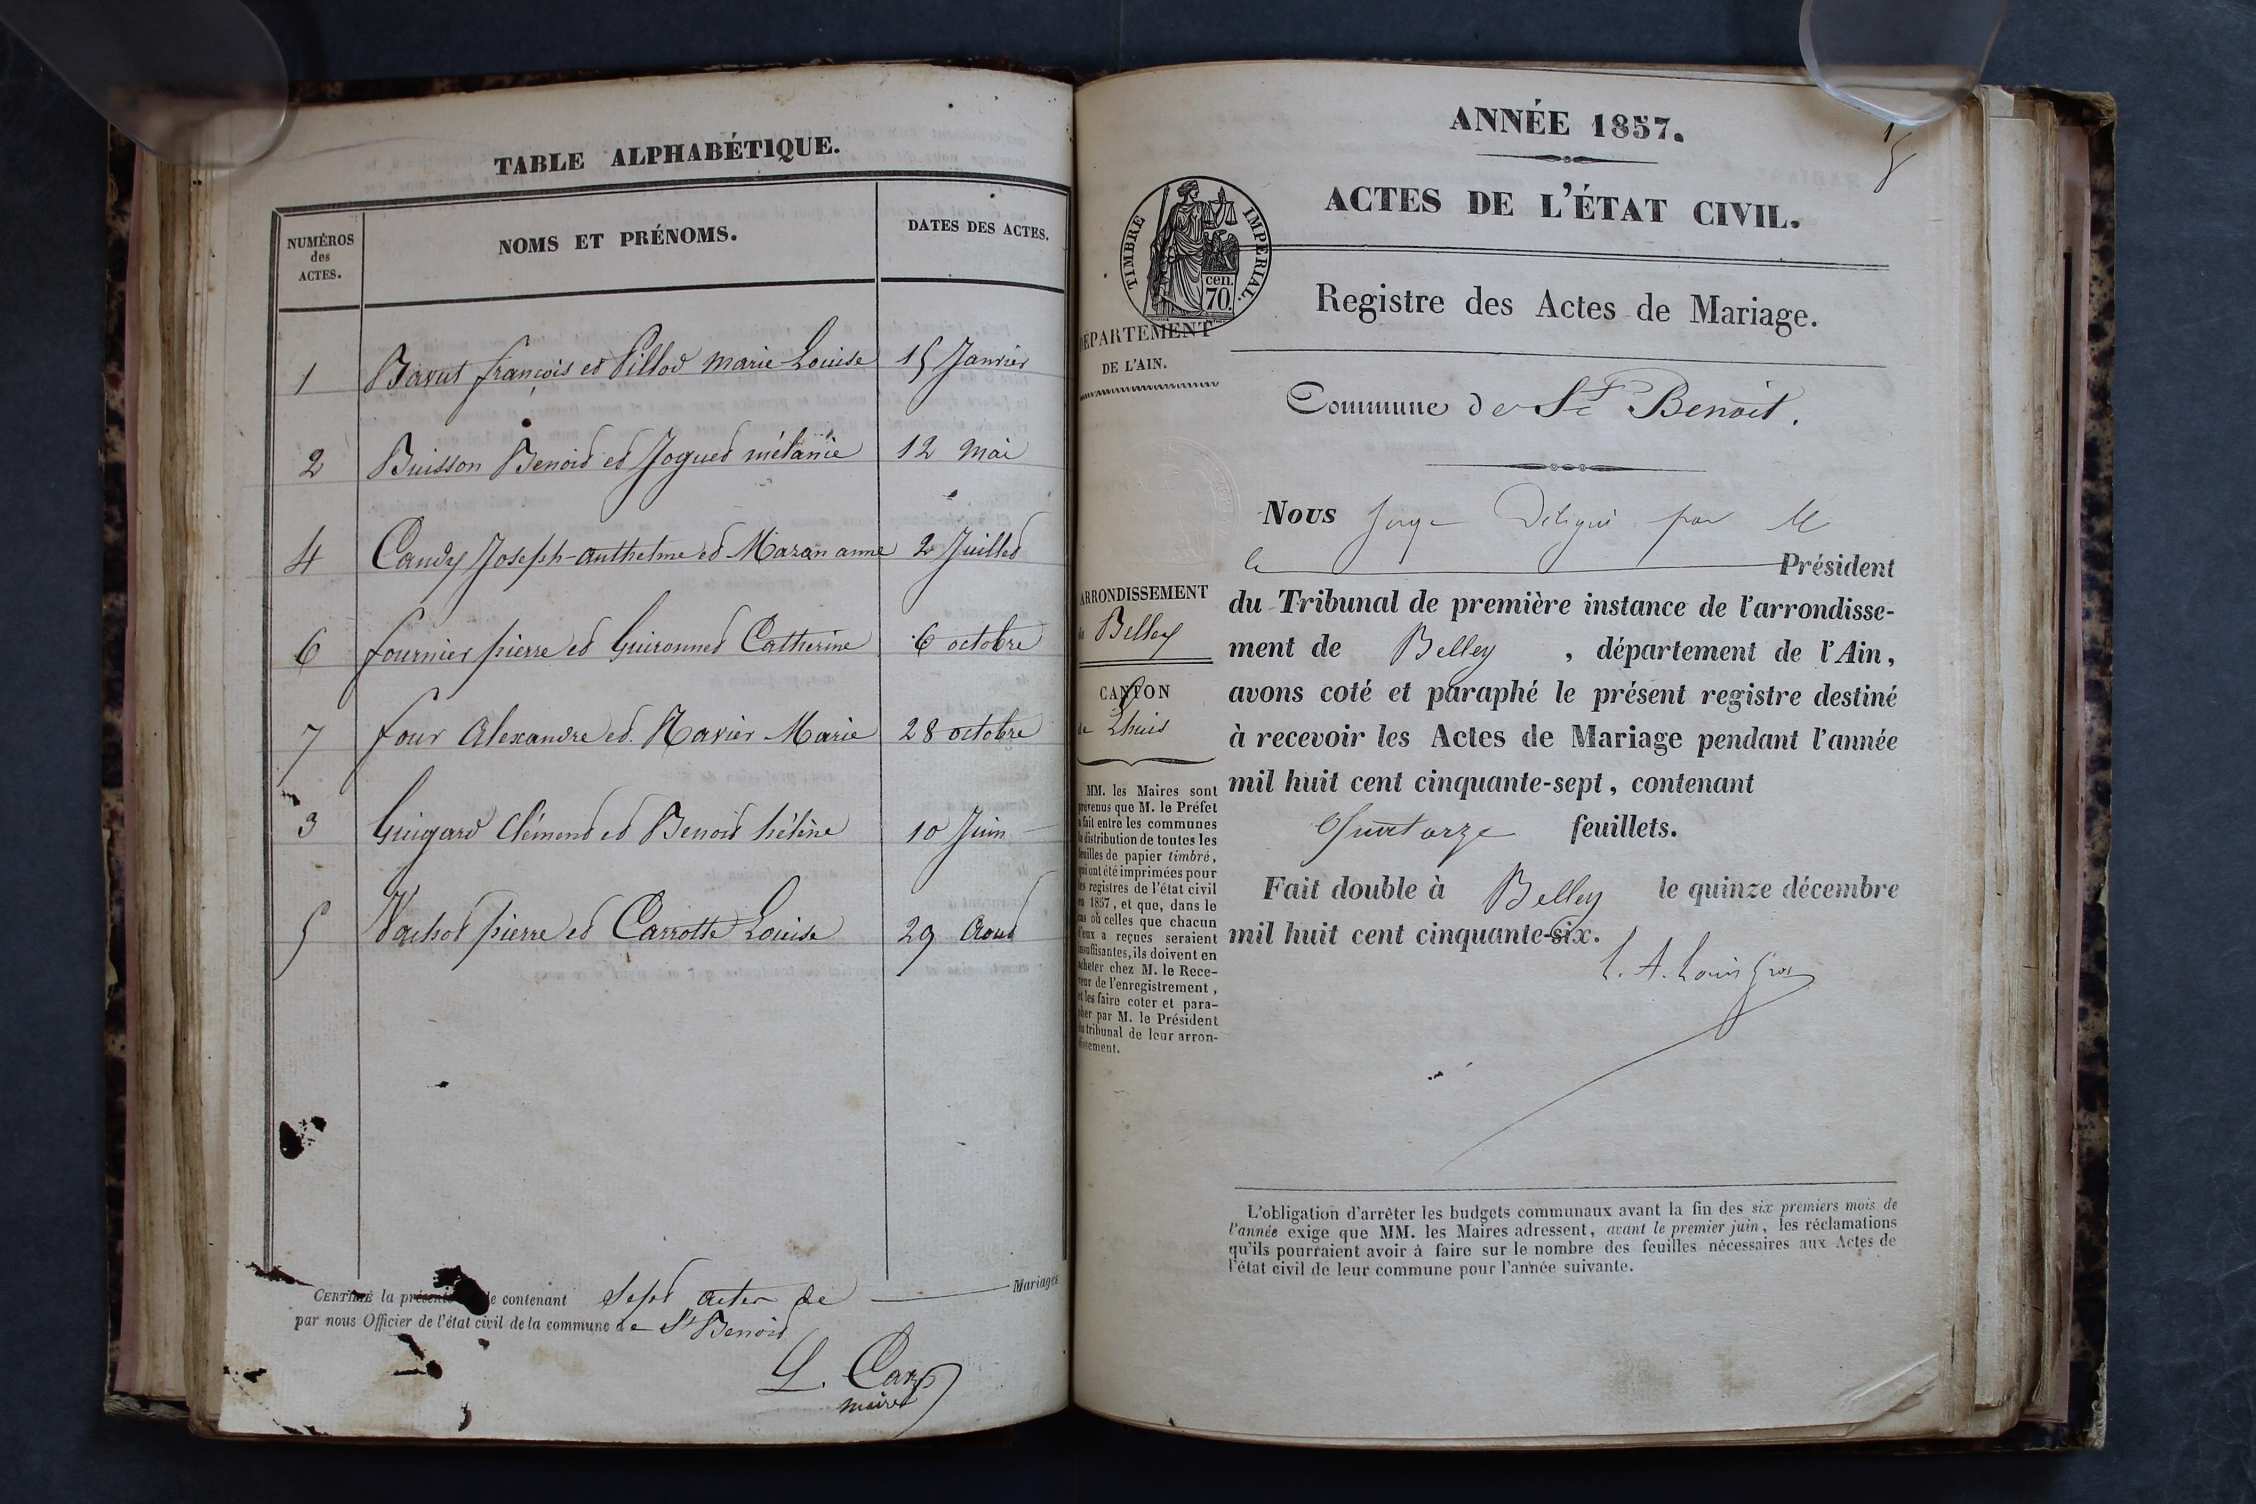 TABLE ALPHABÉTIQUE.
NUMÉROS
des
ACTES.
NOMS ET PRÉNOMS.
DATES DES ACTES.
1 Bavut françois et Pillod marie Louise 15 Janvier
2 Buisson Benoit et Joguet mélanie 12 Mai
4 Candy Joseph-anthelme et Mazan anne 2 Juillet
6 fournier pierre et Guironnet Catherine 6 octobre
7 four Alexandre et Navier Marie 28 octobre
3 Guigard Clément et Benoit hélène 10 Juin
5 Vachot pierre et Carrotte Louise 29 Aout
CERTIFIÉ la présente contenant Sept actes de Mariages
par nous Officier de l'état civil de la commune de St Benoit
maire
ANNÉE 1857.
ACTES DE L'ÉTAT CIVIL.
TIMBRE IMPÉRIAL.
cen.
70.
Registre des Actes de Mariage.
DÉPARTEMENT
DE L'AIN.
Commune de St Benoit.
Nous Juge Délégué par M
le Président
du Tribunal de première instance de l'arrondisse-
ment de Belley, département de l'Ain,
avons coté et paraphé le présent registre destiné
à recevoir les Actes de Mariage pendant l'année
mil huit cent cinquante-sept, contenant
Quatorze feuillets.
Fait double à Belley le quinze décembre
mil huit cent cinquante-six.
ARRONDISSEMENT
de Belley
CANTON
de Lhuis
MM. les Maires sont
prévenus que M. le Préfet
a fait entre les communes
la distribution de toutes les
feuilles de papier timbré,
qui ont été imprimées pour
les registres de l'état civil
en 1857, et que, dans le
cas où celles que chacun
d'eux a reçues seraient
insuffisantes, ils doivent en
acheter chez M. le Rece-
veur de l'enregistrement,
et les faire coter et para-
pher par M. le Président
du tribunal de leur arron-
dissement.
L'obligation d'arrêter les budgets communaux avant la fin des six premiers mois de
l'année exige que MM. les Maires adressent, avant le premier juin, les réclamations
qu'ils pourraient avoir à faire sur le nombre des feuilles nécessaires aux Actes de
l'état civil de leur commune pour l'année suivante.